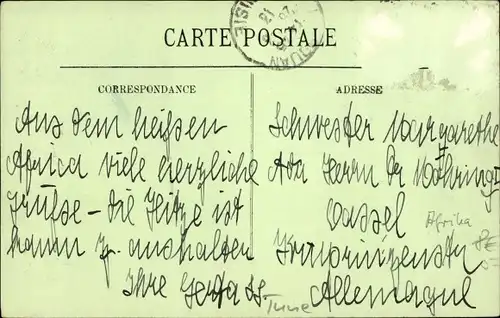 CARTE POSTALE
CORRESPONDANCE
ADRESSE
Aus dem heißen
Africa viele herzliche
Grüße – die Hitze ist
kaum z. aushalten
Ihre
Schwester Margarethe
Herrn Dr Möhring
Cassel
Kronprinzenstr
Allemagne
Afrika
Tune